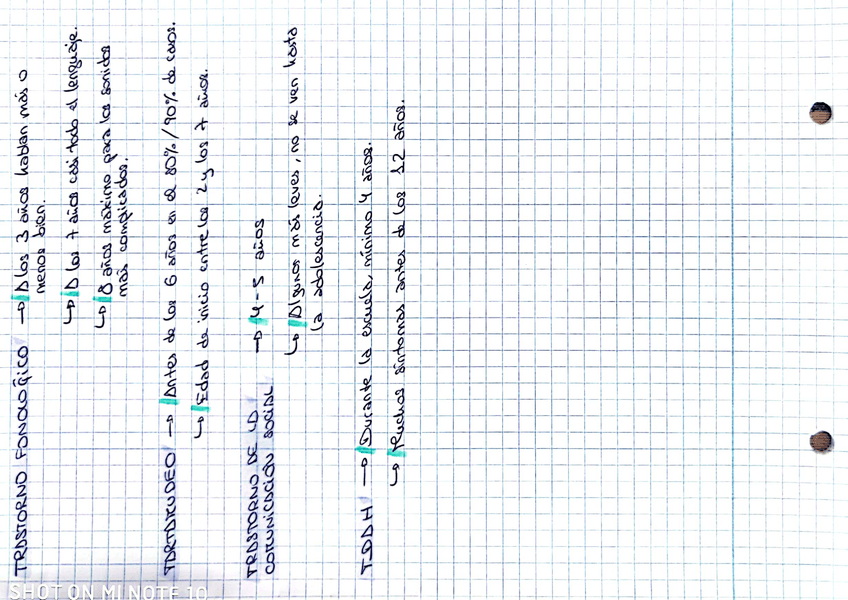 TRASTORNO FONOLÓGICO → A los 3 años hablan más o
menos bien.
↳ A los 7 años casi todo el lenguaje.
↳ 8 años máximo para los sonidos
más complicados.
TARTAMUDEO → Antes de los 6 años en el 80%/90% de casos.
↳ Edad de inicio entre los 2 y los 7 años.
TRASTORNO DE LA → 4-5 años
COMUNICACIÓN SOCIAL
↳ Algunos más leves, no se ven hasta
la adolescencia.
TDAH → Durante la escuela, mínimo 4 años.
↳ Muchos síntomas antes de los 12 años.
SHOT ON MI NOTE 10